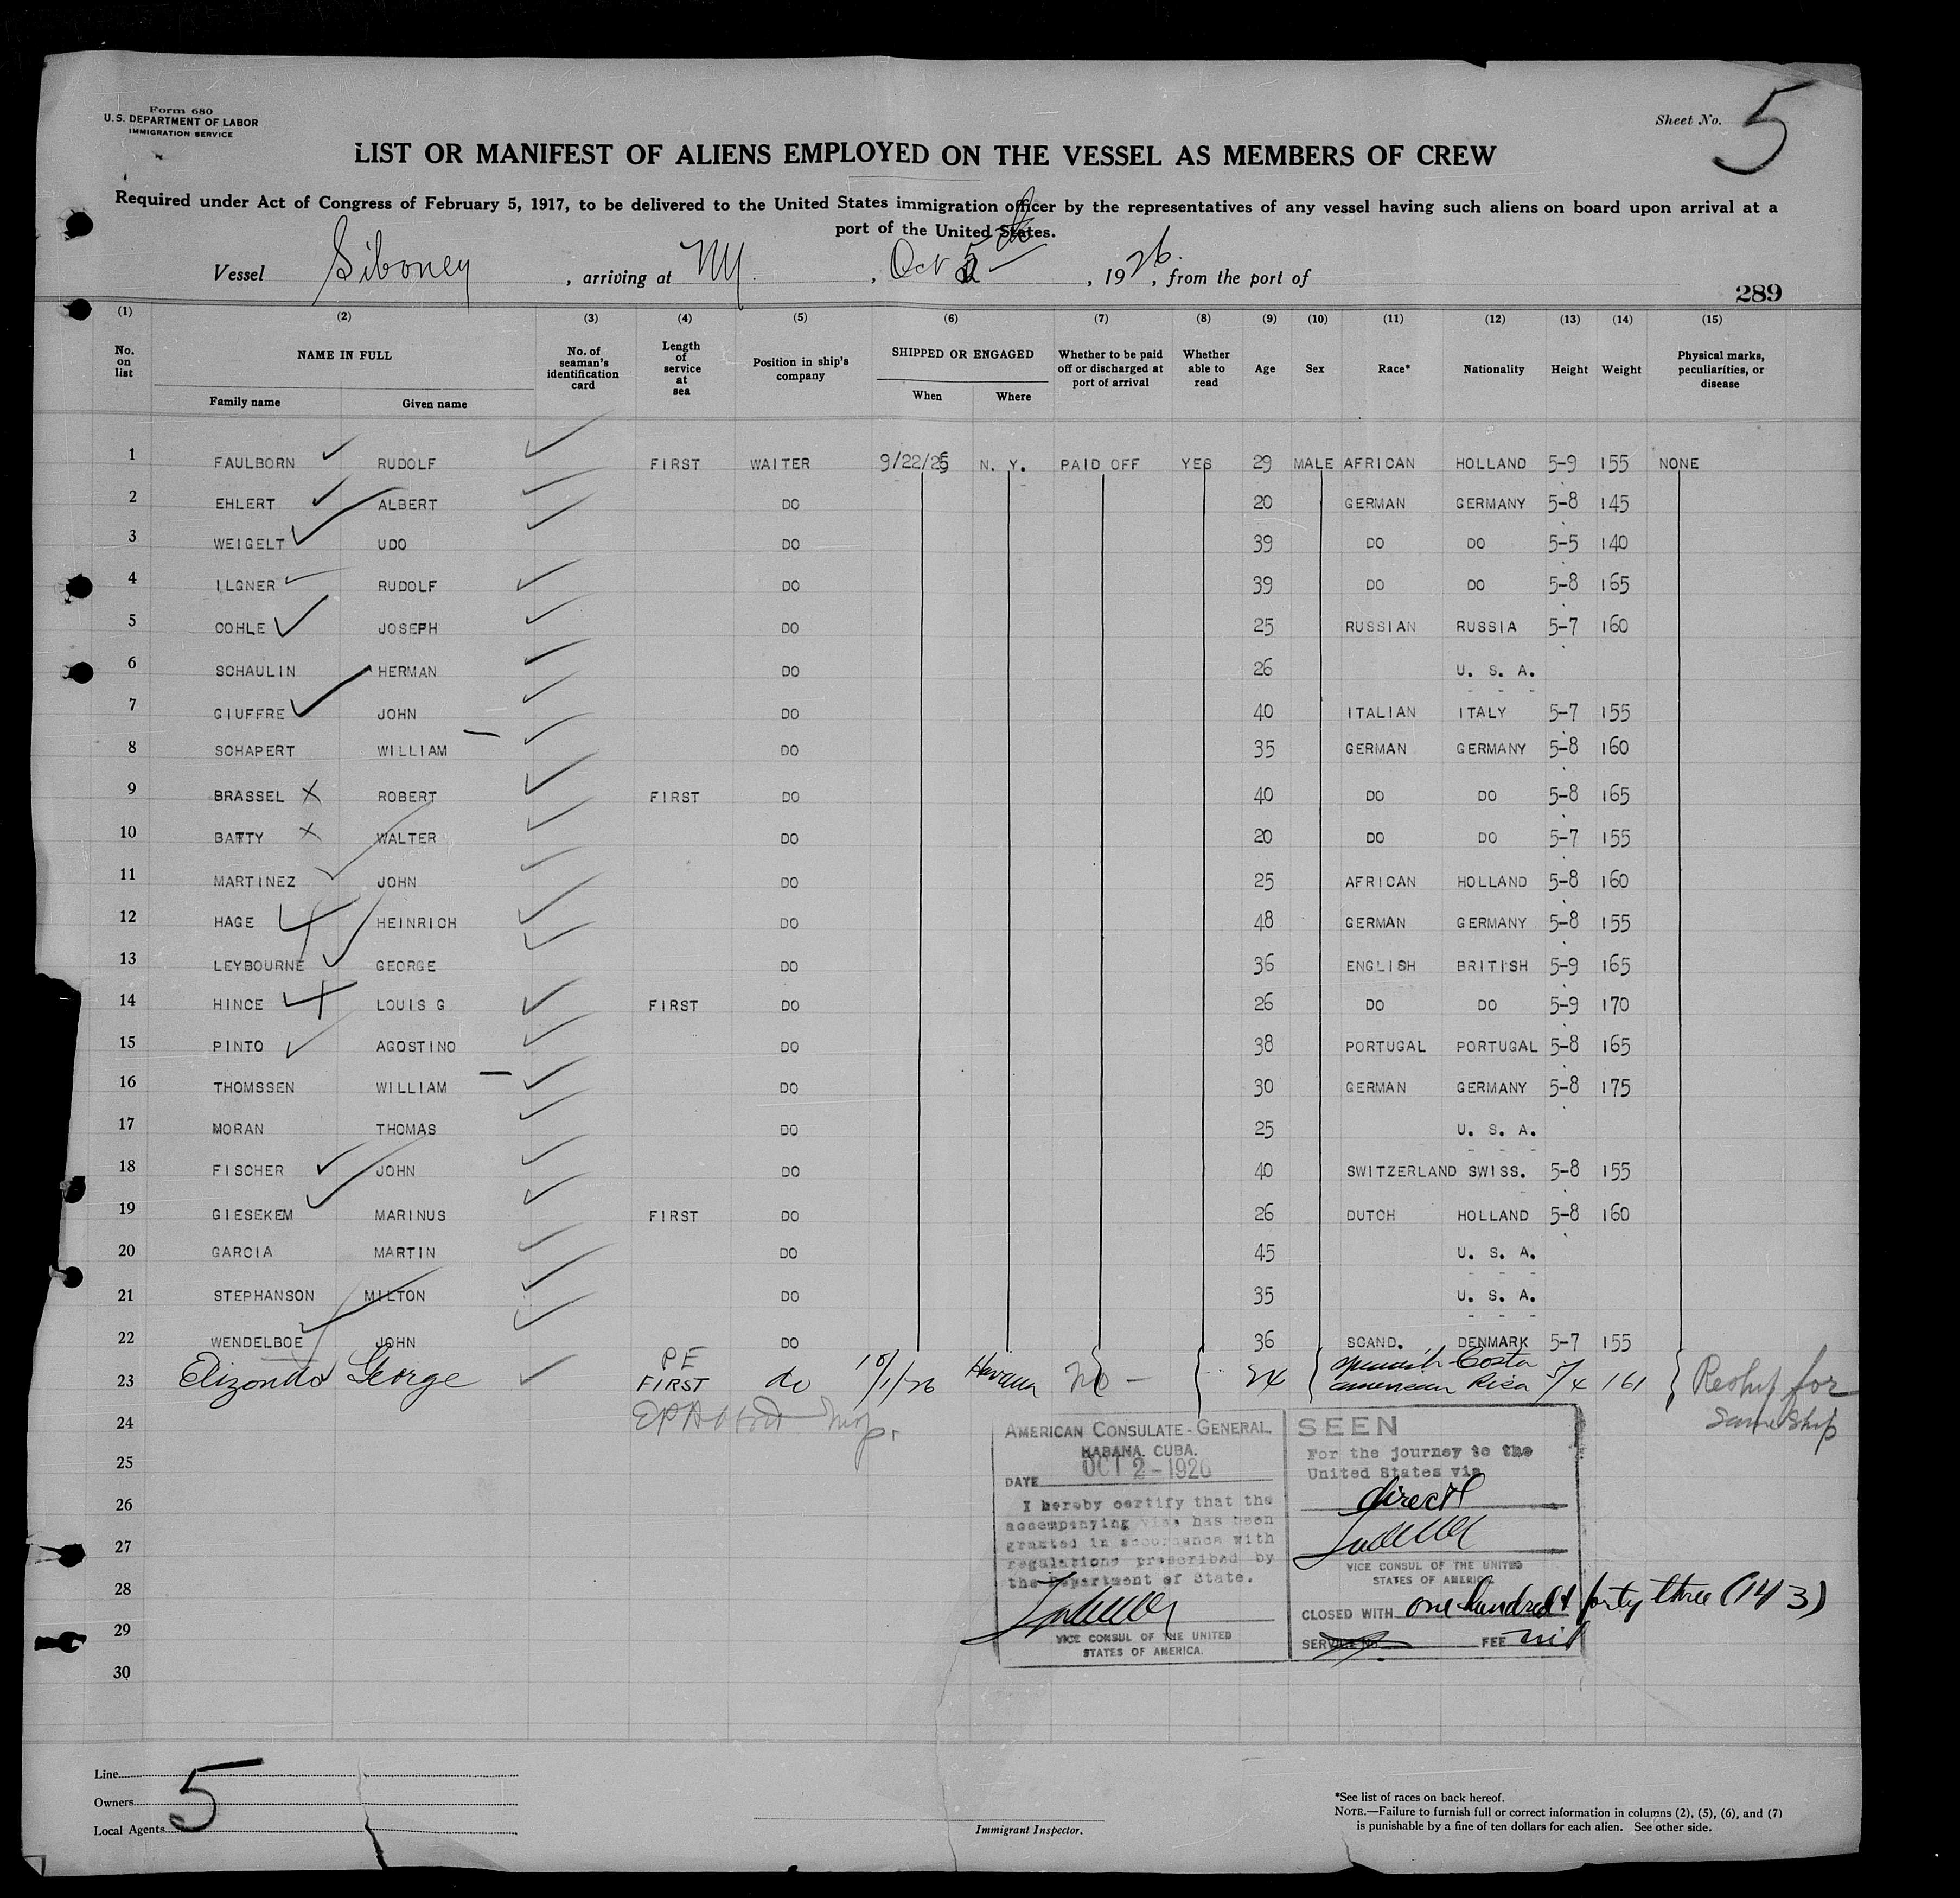 Form 680
U.S. DEPARTMENT OF LABOR
IMMIGRATION SERVICE
Sheet No. 5
LIST OR MANIFEST OF ALIENS EMPLOYED ON THE VESSEL AS MEMBERS OF CREW
Required under Act of Congress of February 5, 1917, to be delivered to the United States immigration officer by the representatives of any vessel having such aliens on board upon arrival at a
port of the United States.
Vessel Siboney, arriving at NY., Oct 5th, 1926., from the port of
289
(1) (2) (3) (4) (5) (6) (7) (8) (9) (10) (11) (12) (13) (14) (15)
No. on list NAME IN FULL Family name Given name No. of seaman's identification card Length of service at sea Position in ship's company SHIPPED OR ENGAGED When Where Whether to be paid off or discharged at port of arrival Whether able to read Age Sex Race* Nationality Height Weight Physical marks, peculiarities, or disease
1 FAULBORN RUDOLF FIRST WAITER 9/22/26 N. Y. PAID OFF YES 29 MALE AFRICAN HOLLAND 5-9 155 NONE
2 EHLERT ALBERT DO 20 GERMAN GERMANY 5-8 145
3 WEIGELT UDO DO 39 DO DO 5-5 140
4 ILGNER RUDOLF DO 39 DO DO 5-8 165
5 COHLE JOSEPH DO 25 RUSSIAN RUSSIA 5-7 160
6 SCHAULIN HERMAN DO 26 U. S. A.
7 GIUFFRE JOHN DO 40 ITALIAN ITALY 5-7 155
8 SCHAPERT WILLIAM DO 35 GERMAN GERMANY 5-8 160
9 BRASSEL ROBERT FIRST DO 40 DO DO 5-8 165
10 BATTY WALTER DO 20 DO DO 5-7 155
11 MARTINEZ JOHN DO 25 AFRICAN HOLLAND 5-8 160
12 HAGE HEINRICH DO 48 GERMAN GERMANY 5-8 155
13 LEYBOURNE GEORGE DO 36 ENGLISH BRITISH 5-9 165
14 HINCE LOUIS G FIRST DO 26 DO DO 5-9 170
15 PINTO AGOSTINO DO 38 PORTUGAL PORTUGAL 5-8 165
16 THOMSSEN WILLIAM DO 30 GERMAN GERMANY 5-8 175
17 MORAN THOMAS DO 25 U. S. A.
18 FISCHER JOHN DO 40 SWITZERLAND SWISS. 5-8 155
19 GIESEKEM MARINUS FIRST DO 26 DUTCH HOLLAND 5-8 160
20 GARCIA MARTIN DO 45 U. S. A.
21 STEPHANSON MILTON DO 35 U. S. A.
22 WENDELBOE JOHN DO 36 SCAND. DENMARK 5-7 155
23 Elizondo George PE FIRST do 10/1/26 Havana No - 24 Spanish american Costa Rica 5/4 161 Reship for
24 same ship
25
26
27
28
29
30
AMERICAN CONSULATE-GENERAL
HABANA, CUBA.
DATE OCT 2-1926
I hereby certify that the
accompanying visa has been
granted in accordance with
regulations prescribed by
the Department of State.
VICE CONSUL OF THE UNITED
STATES OF AMERICA.
SEEN
For the journey to the
United States via
direct
VICE CONSUL OF THE UNITED
STATES OF AMERICA
CLOSED WITH one hundred & forty three (143)
SERVICE No. FEE nil
Line
Owners
Local Agents
5
Immigrant Inspector.
*See list of races on back hereof.
NOTE.—Failure to furnish full or correct information in columns (2), (5), (6), and (7)
is punishable by a fine of ten dollars for each alien. See other side.